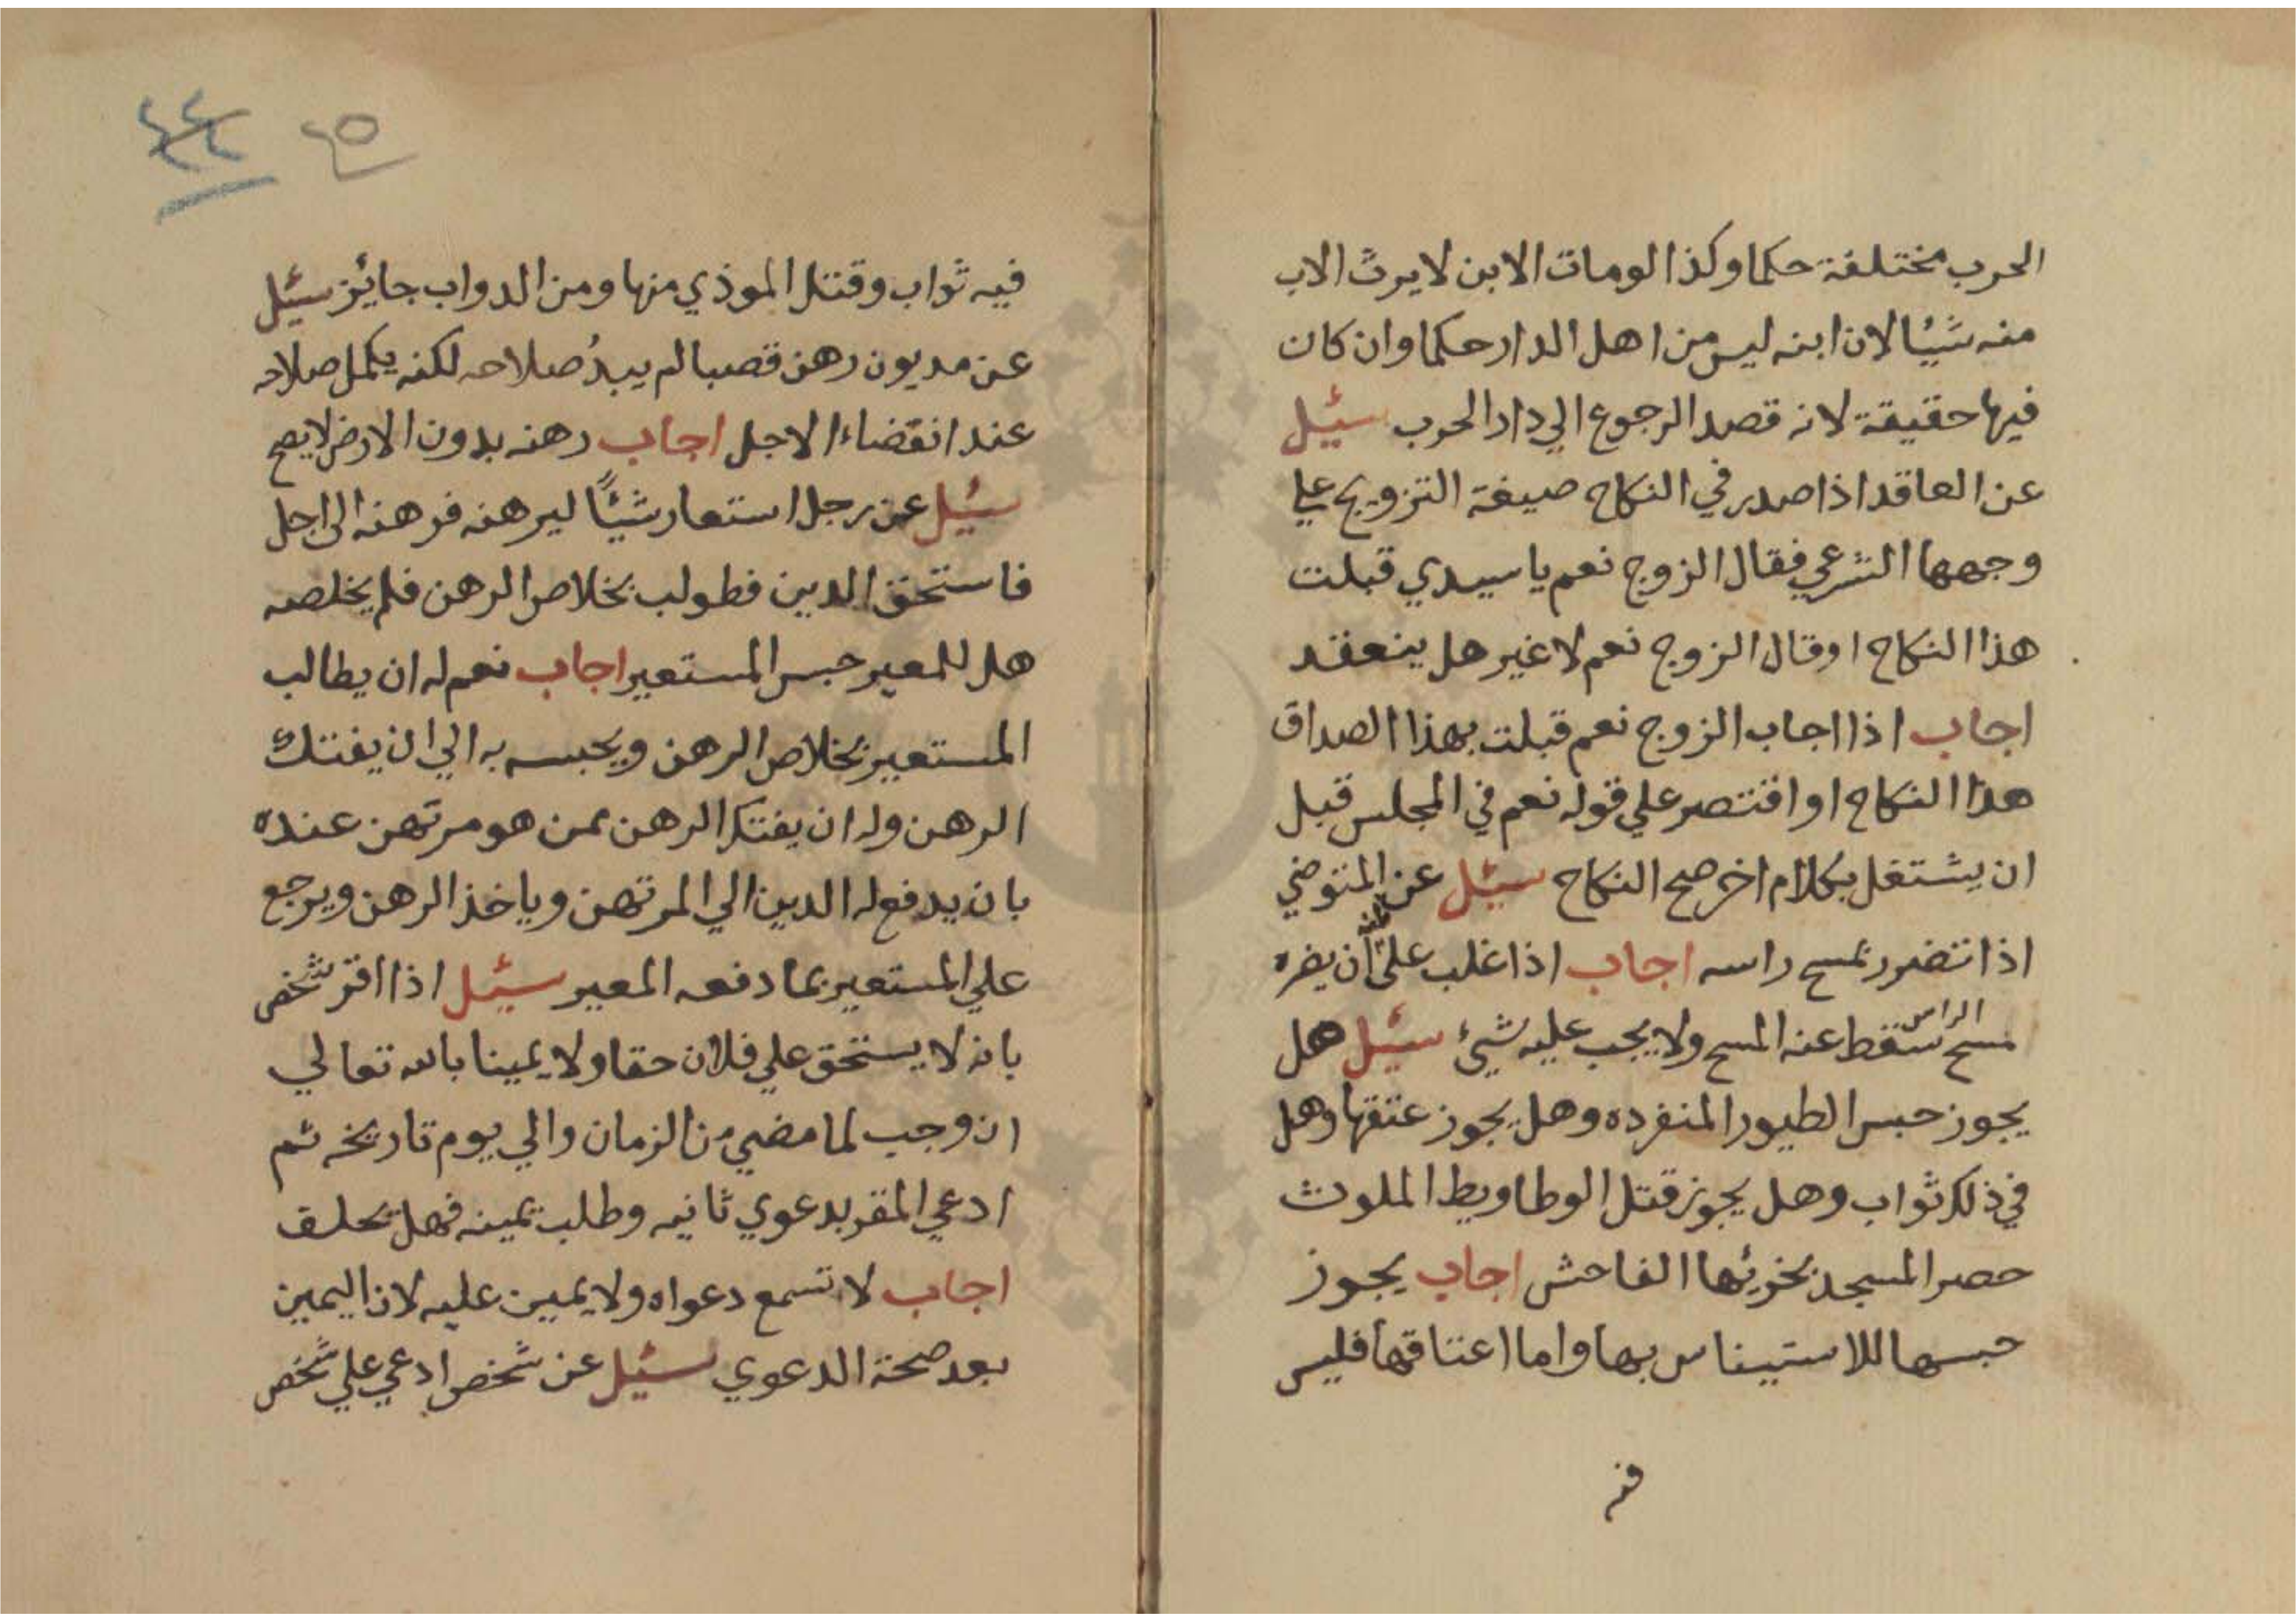 الحرب مختلفة حكما وكذا لومات الابن لا يرث الاب
منه شيئا لان ابنه ليس من اهل الدار حكما وان كان
فيها حقيقة لانه قصد الرجوع الي دار الحرب سئيل
عن العاقد اذا صدر في النكاح صيغة التزويج علي
وجهها الشرعي فقال الزوج نعم يا سيدي قبلت
هذا النكاح او قال الزوج نعم لا غير هل ينعقد
اجاب اذا اجاب الزوج نعم قبلت بهذا الصداق
هذا النكاح او اقتصر علي قوله نعم في المجلس قبل
ان يشتغل بكلام اخر صح النكاح سئيل عن المتوضي
اذا تضرر بمسح راسه اجاب اذا غلب علي ظنه ان يضره
مسح الراس سقط عنه المسح ولا يجب عليه شيئ سئيل هل
يجوز حبس الطيور المنفرده وهل يجوز عتقها وهل
في ذلك ثواب وهل يجوز قتل الوطاويط الملوث
حصر المسجد بخريئها الفاحش اجاب يجوز
حبسها للاستيناس بها واما اعتاقها فليس
فيه
٤٥ ٤٤
فيه ثواب وقتل الموذي منها ومن الدواب جايئز سئيل
عن مديون رهن قصبا لم يبدُ صلاحه لكنه يكمل صلاحه
عند انقضاء الاجل اجاب رهنه بدون الارض لا يصح
سئيل عن رجل استعار شيئًا ليرهنه فرهنه الى اجل
فاستحق الدين فطولب بخلاص الرهن فلم يخلصه
هل للمعير حبس المستعير اجاب نعم له ان يطالب
المستعير بخلاص الرهن ويحبسه به الي ان يفتك
الرهن وله ان يفتك الرهن ممن هو مرتهن عنده
بان يدفع له الدين الي المرتهن وياخذ الرهن ويرجع
علي المستعير بما دفعه المعير سئيل اذا اقر شخص
بانه لا يستحق علي فلان حقا ولا يمينا بالله تعالي
ان وجب لما مضي من الزمان والي يوم تاريخه ثم
ادعي المقر بدعوي ثانيه وطلب يمينه فهل يحلف
اجاب لا تسمع دعواه ولا يمين عليه لان اليمين
بعد صحة الدعوي سئيل عن شخص ادعي علي شخص